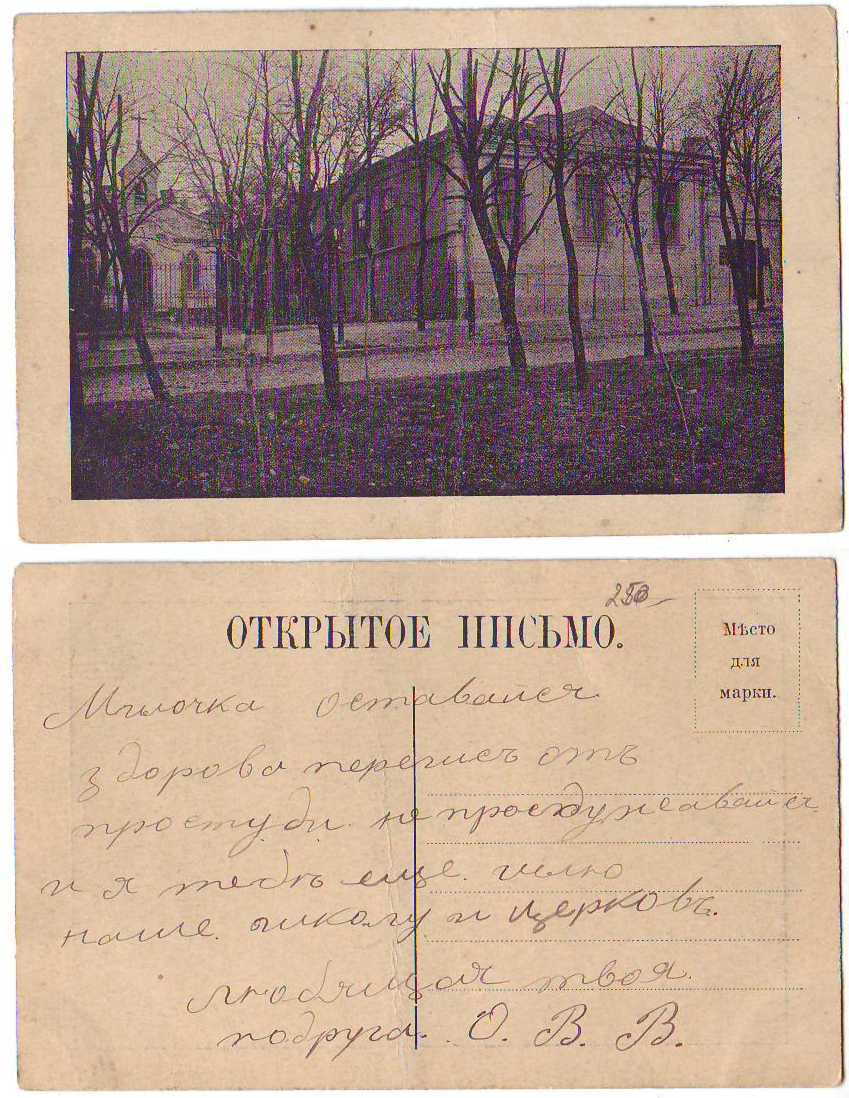 ОТКРЫТОЕ ПИСЬМО.
Мѣсто
для
марки.
Милочка оставайся
здорова
простуди. не простуживайся
и я тебѣ еще. шлю
наше. школу и церковъ.
любящая твоя.
подруга. О. В. В.